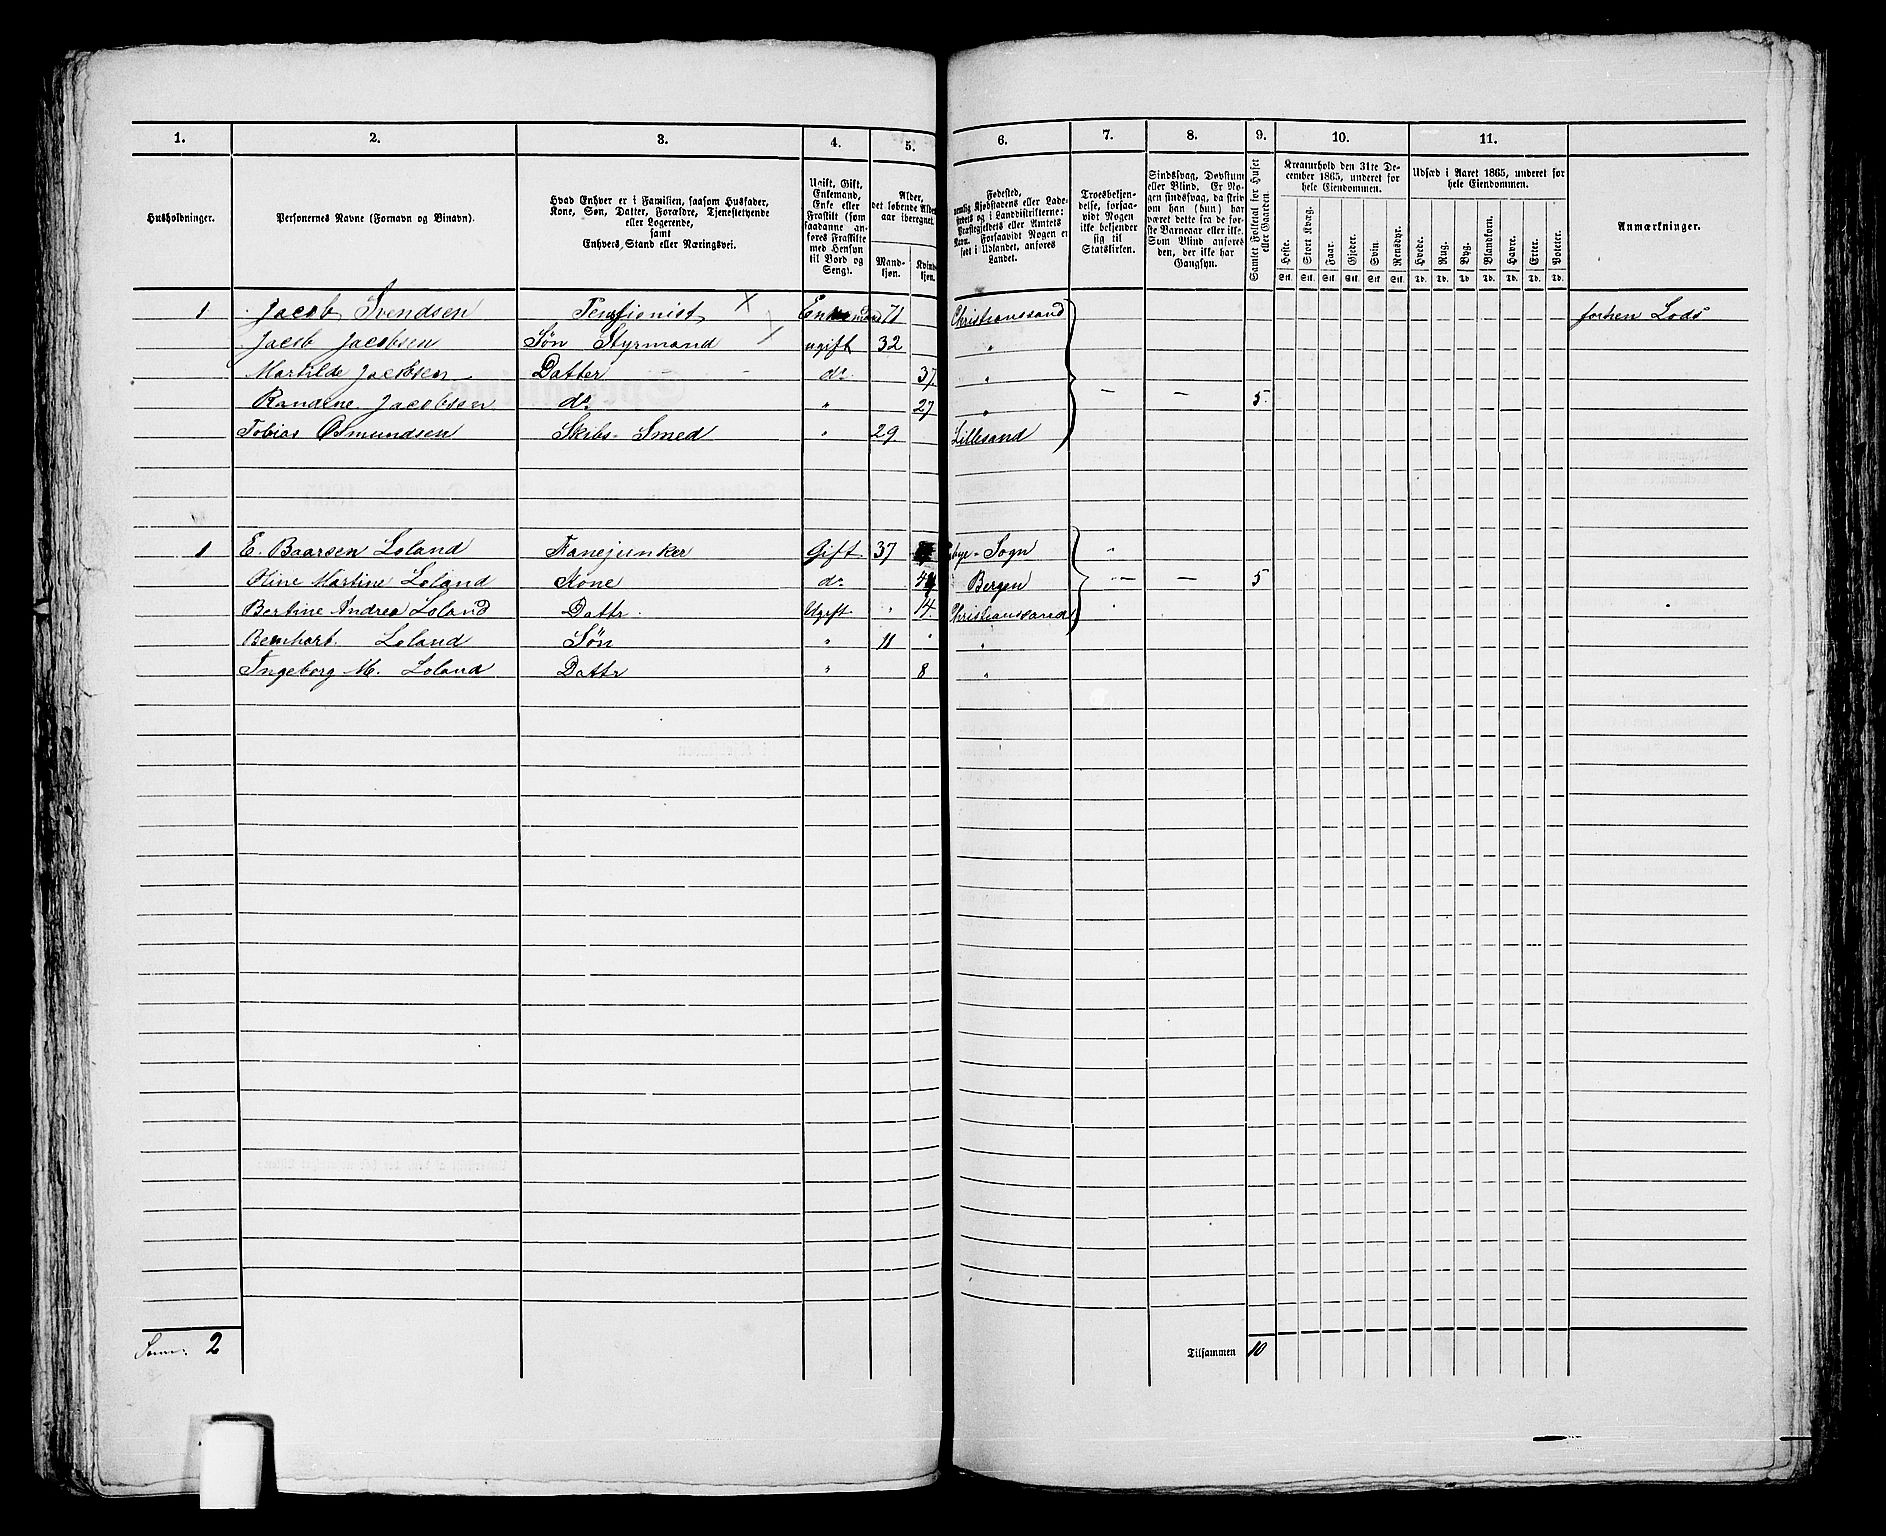 1. 2. 3. 4. 5. 6. 7. 8. 9. 10. 11.
Husholdninger.
Personernes Navne (Fornavn og Binavn).
Hvad Enhver er i Familien, saasom Husfader,
Kone, Søn, Datter, Forældre, Tjenestetyende
eller Logerende,
samt
Enhvers Stand eller Næringsvei.
Ugift, Gift,
Enkemand,
Enke eller
Fraskilt (som
saadanne an-
føres Fraskilte
med Hensyn
til Bord og
Seng).
Alder,
det løbende Alders-
aar iberegnet.
Mand-
kjøn.
Kvinde-
kjøn.
Fødested,
nemlig Kjøbstadens eller Lade-
stedets og i Landdistrikterne:
Præstegjeldets eller Amtets
Navn. Forsaavidt Nogen er
født i Udlandet, anføres
Landet.
Troesbekjen-
delse, forsaa-
vidt Nogen
ikke bekjender
sig til
Statskirken.
Sindssvag, Døvstum
eller Blind. Er No-
gen sindssvag, da skriv
om han (hun) har
været dette fra de før-
ste Barneaar eller ikke.
Som Blind anføres
den, der ikke har
Gangsyn.
Samlet Folketal for Huset
eller Gaarden.
Kreaturhold den 31te De-
cember 1865, underet for
hele Eiendommen.
Heste. Stort Kvæg. Faar. Gjeder. Svin. Rensdyr.
Stk. Stk. Stk. Stk. Stk. Stk.
Udsæd i Aaret 1865, underet for
hele Eiendommen.
Hvede. Rug. Byg. Blandkorn. Havre. Erter. Poteter.
Td. Td. Td. Td. Td. Td. Td.
Anmærkninger.
1 Jacob Svendsen Pensionist x Enkemand 71 Christianssand forhen Lods
Jacob Jacobsen Søn Styrmand ugift 32 "
Martilde Jacobsen Datter - - do 37 "
Randine Jacobsen do " 27 " - - 5
Tobias Osmundsen Skibs-Smed " 29 Lillesand
1 E. Baarsen Loland Fanejunker Gift 37 Sogn "
Oline Martine Loland Kone do Bergen - - 5
Bertine Andrea Loland Dattr. Ugift " 14. Christianssand "
Bernhart. Loland Søn " 11 " "
Ingeborg M. Loland Dattr " 8 "
Sum: 2 Tilsammen 10